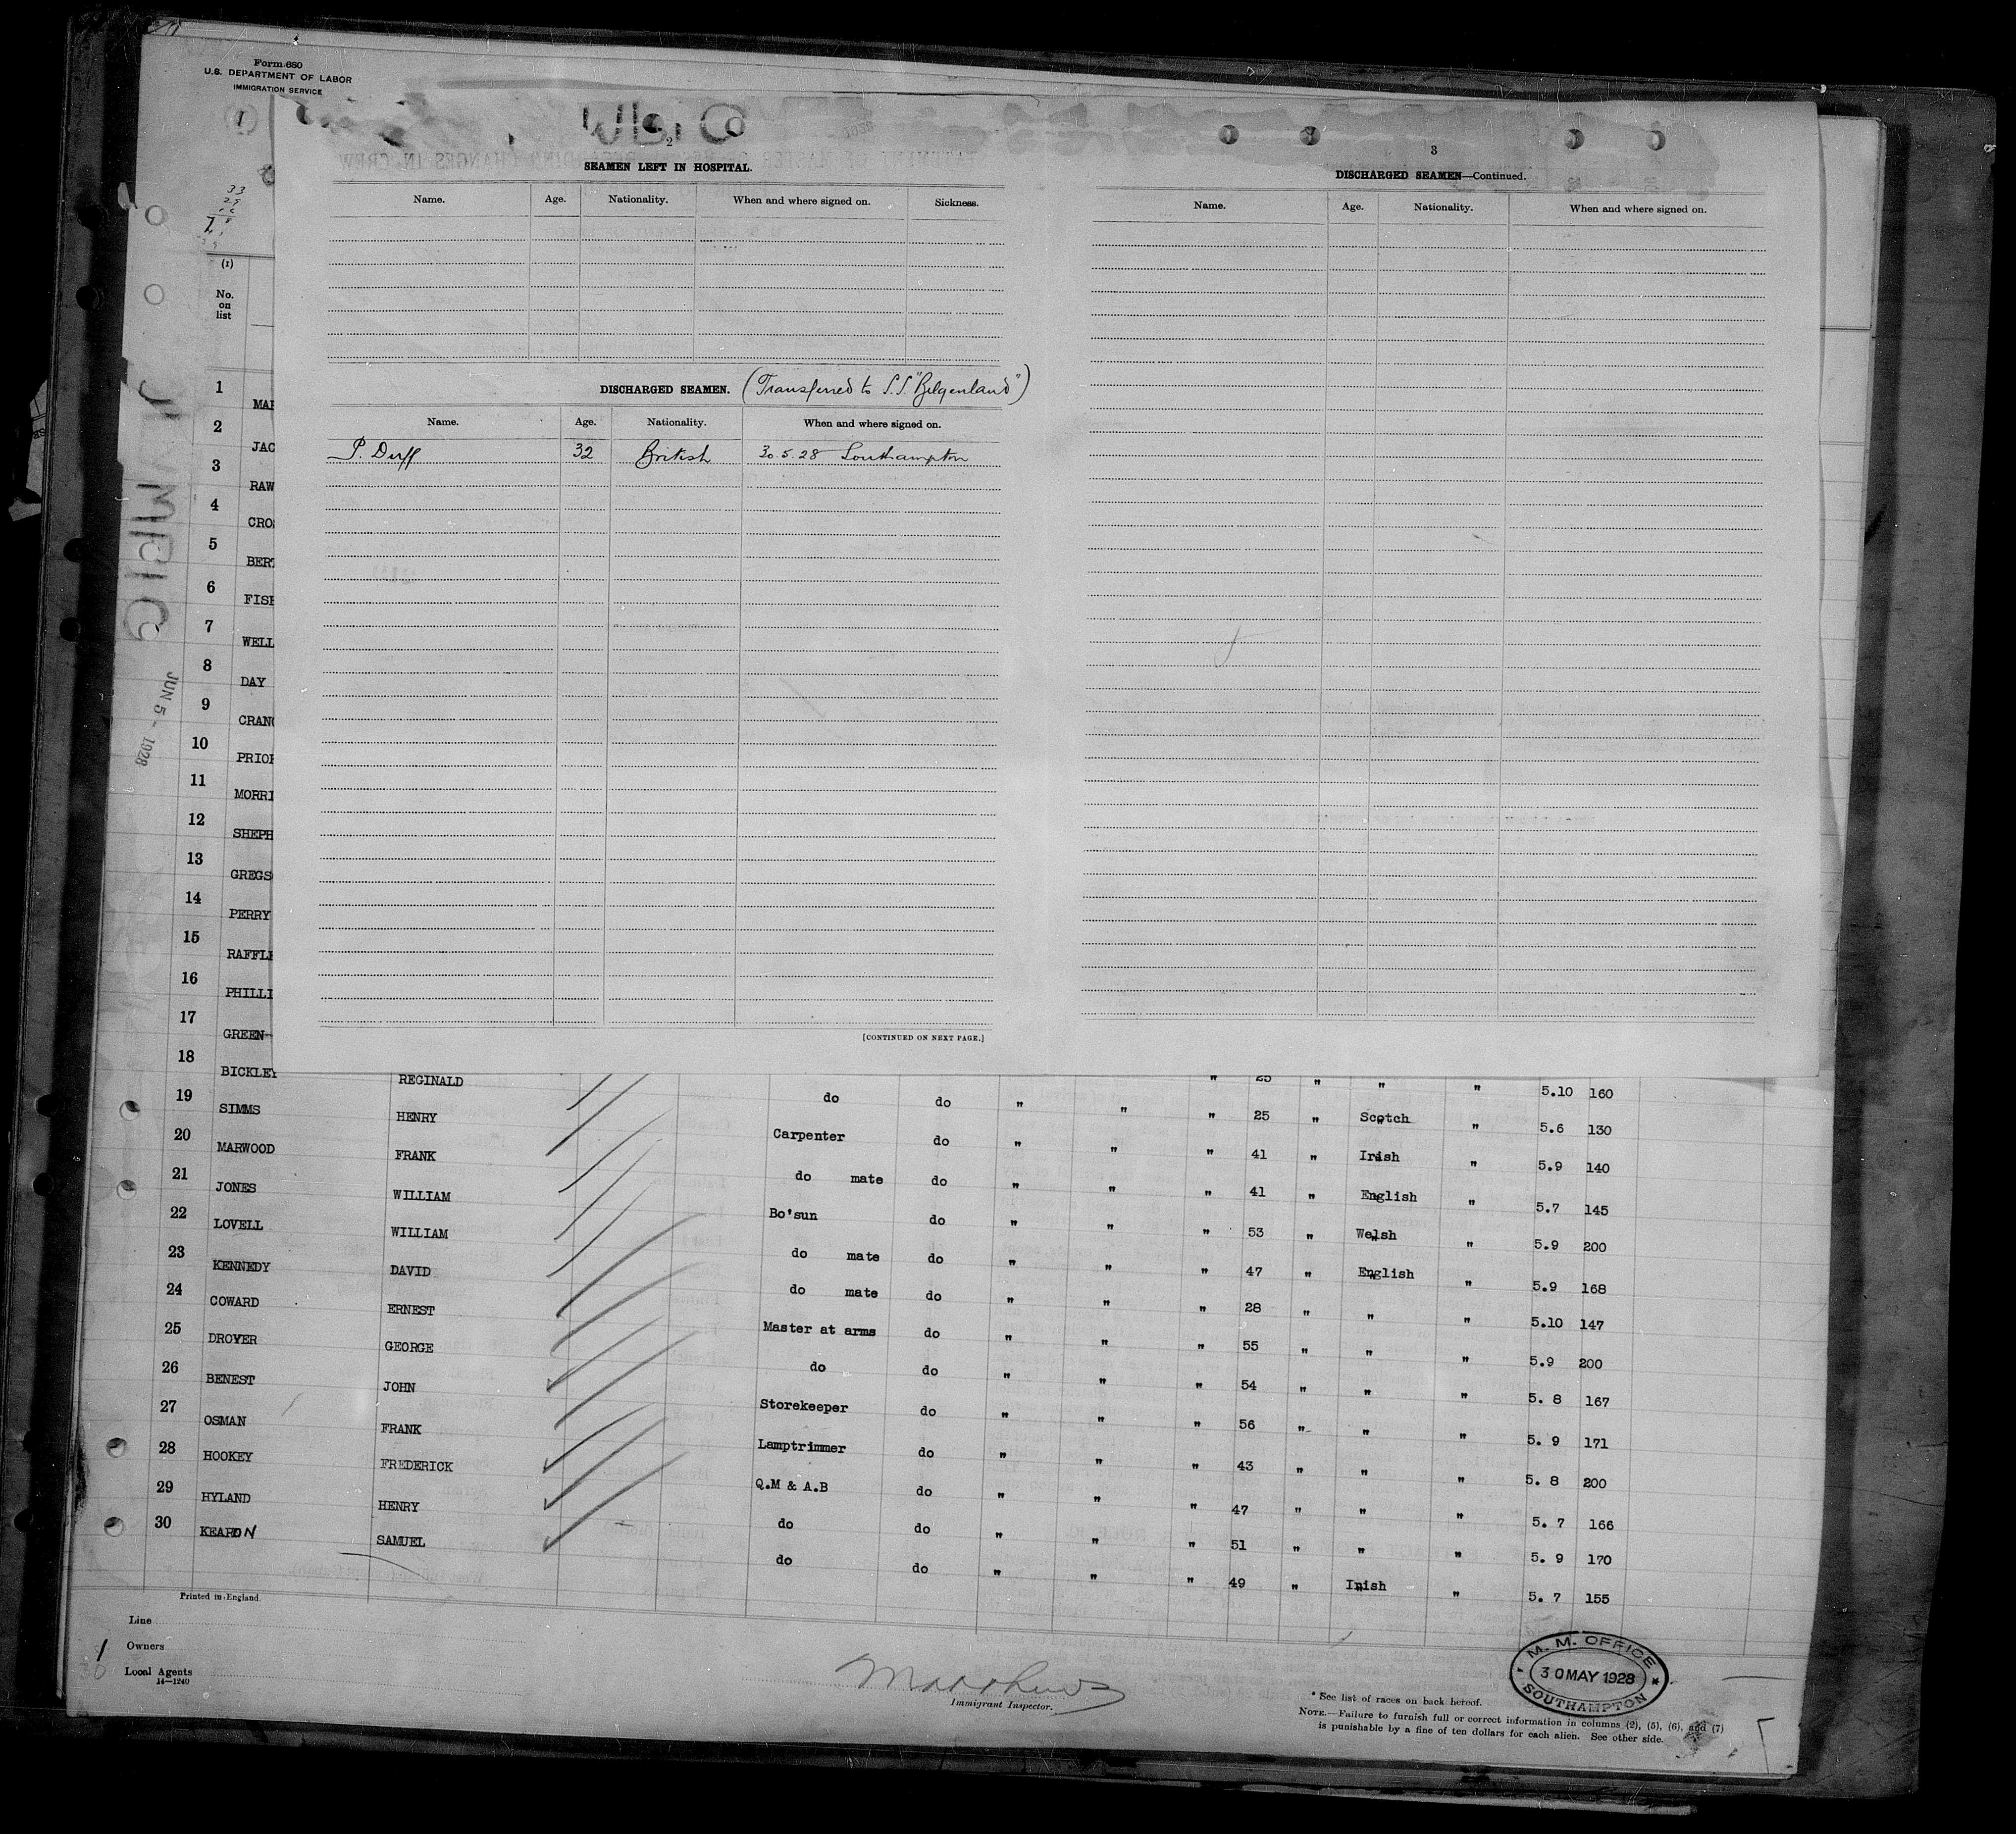 Form 680
U.S. DEPARTMENT OF LABOR
IMMIGRATION SERVICE
2
SEAMEN LEFT IN HOSPITAL.
Name. Age. Nationality. When and where signed on. Sickness.
DISCHARGED SEAMEN. (Transferred to S.S. "Belgenland")
Name. Age. Nationality. When and where signed on.
P. Duff 32 British 30.5.28 Southampton
[CONTINUED ON NEXT PAGE.]
3
DISCHARGED SEAMEN—Continued.
Name. Age. Nationality. When and where signed on.
(1)
No. on list
1 MAR
2 JAC
3 RAW
4 CROS
5 BERT
6 FISH
7 WELL
8 DAY
9 CRANC
10 PRIOR
11 MORRI
12 SHEPH
13 GREGS
14 PERRY
15 RAFFLE
16 PHILLI
17 GREEN
18 BICKLEY REGINALD " 25 " " " 5.10 160
19 SIMMS HENRY do do " " " 25 " Scotch " 5.6 130
20 MARWOOD FRANK Carpenter do " " " 41 " Irish " 5.9 140
21 JONES WILLIAM do mate do " " " 41 " English " 5.7 145
22 LOVELL WILLIAM Bo'sun do " " " 53 " Welsh " 5.9 200
23 KENNEDY DAVID do mate do " " " 47 " English " 5.9 168
24 COWARD ERNEST do mate do " " " 28 " " " 5.10 147
25 DROVER GEORGE Master at arms do " " " 55 " " " 5.9 200
26 BENEST JOHN do do " " " 54 " " " 5. 8 167
27 OSMAN FRANK Storekeeper do " " " 56 " " " 5. 9 171
28 HOOKEY FREDERICK Lamptrimmer do " " " 43 " " " 5. 8 200
29 HYLAND HENRY Q.M & A.B do " " " 47 " " " 5. 7 166
30 KEARON SAMUEL do do " " " 51 " " " 5. 9 170
do do " " " 49 " Irish " 5. 7 155
JUN 5 - 1928
Printed in England.
Line
Owners
Local Agents
14—1240
Immigrant Inspector.
M. M. OFFICE
30 MAY 1928
SOUTHAMPTON
* See list of races on back hereof.
NOTE.—Failure to furnish full or correct information in columns (2), (5), (6), and (7)
is punishable by a fine of ten dollars for each alien. See other side.